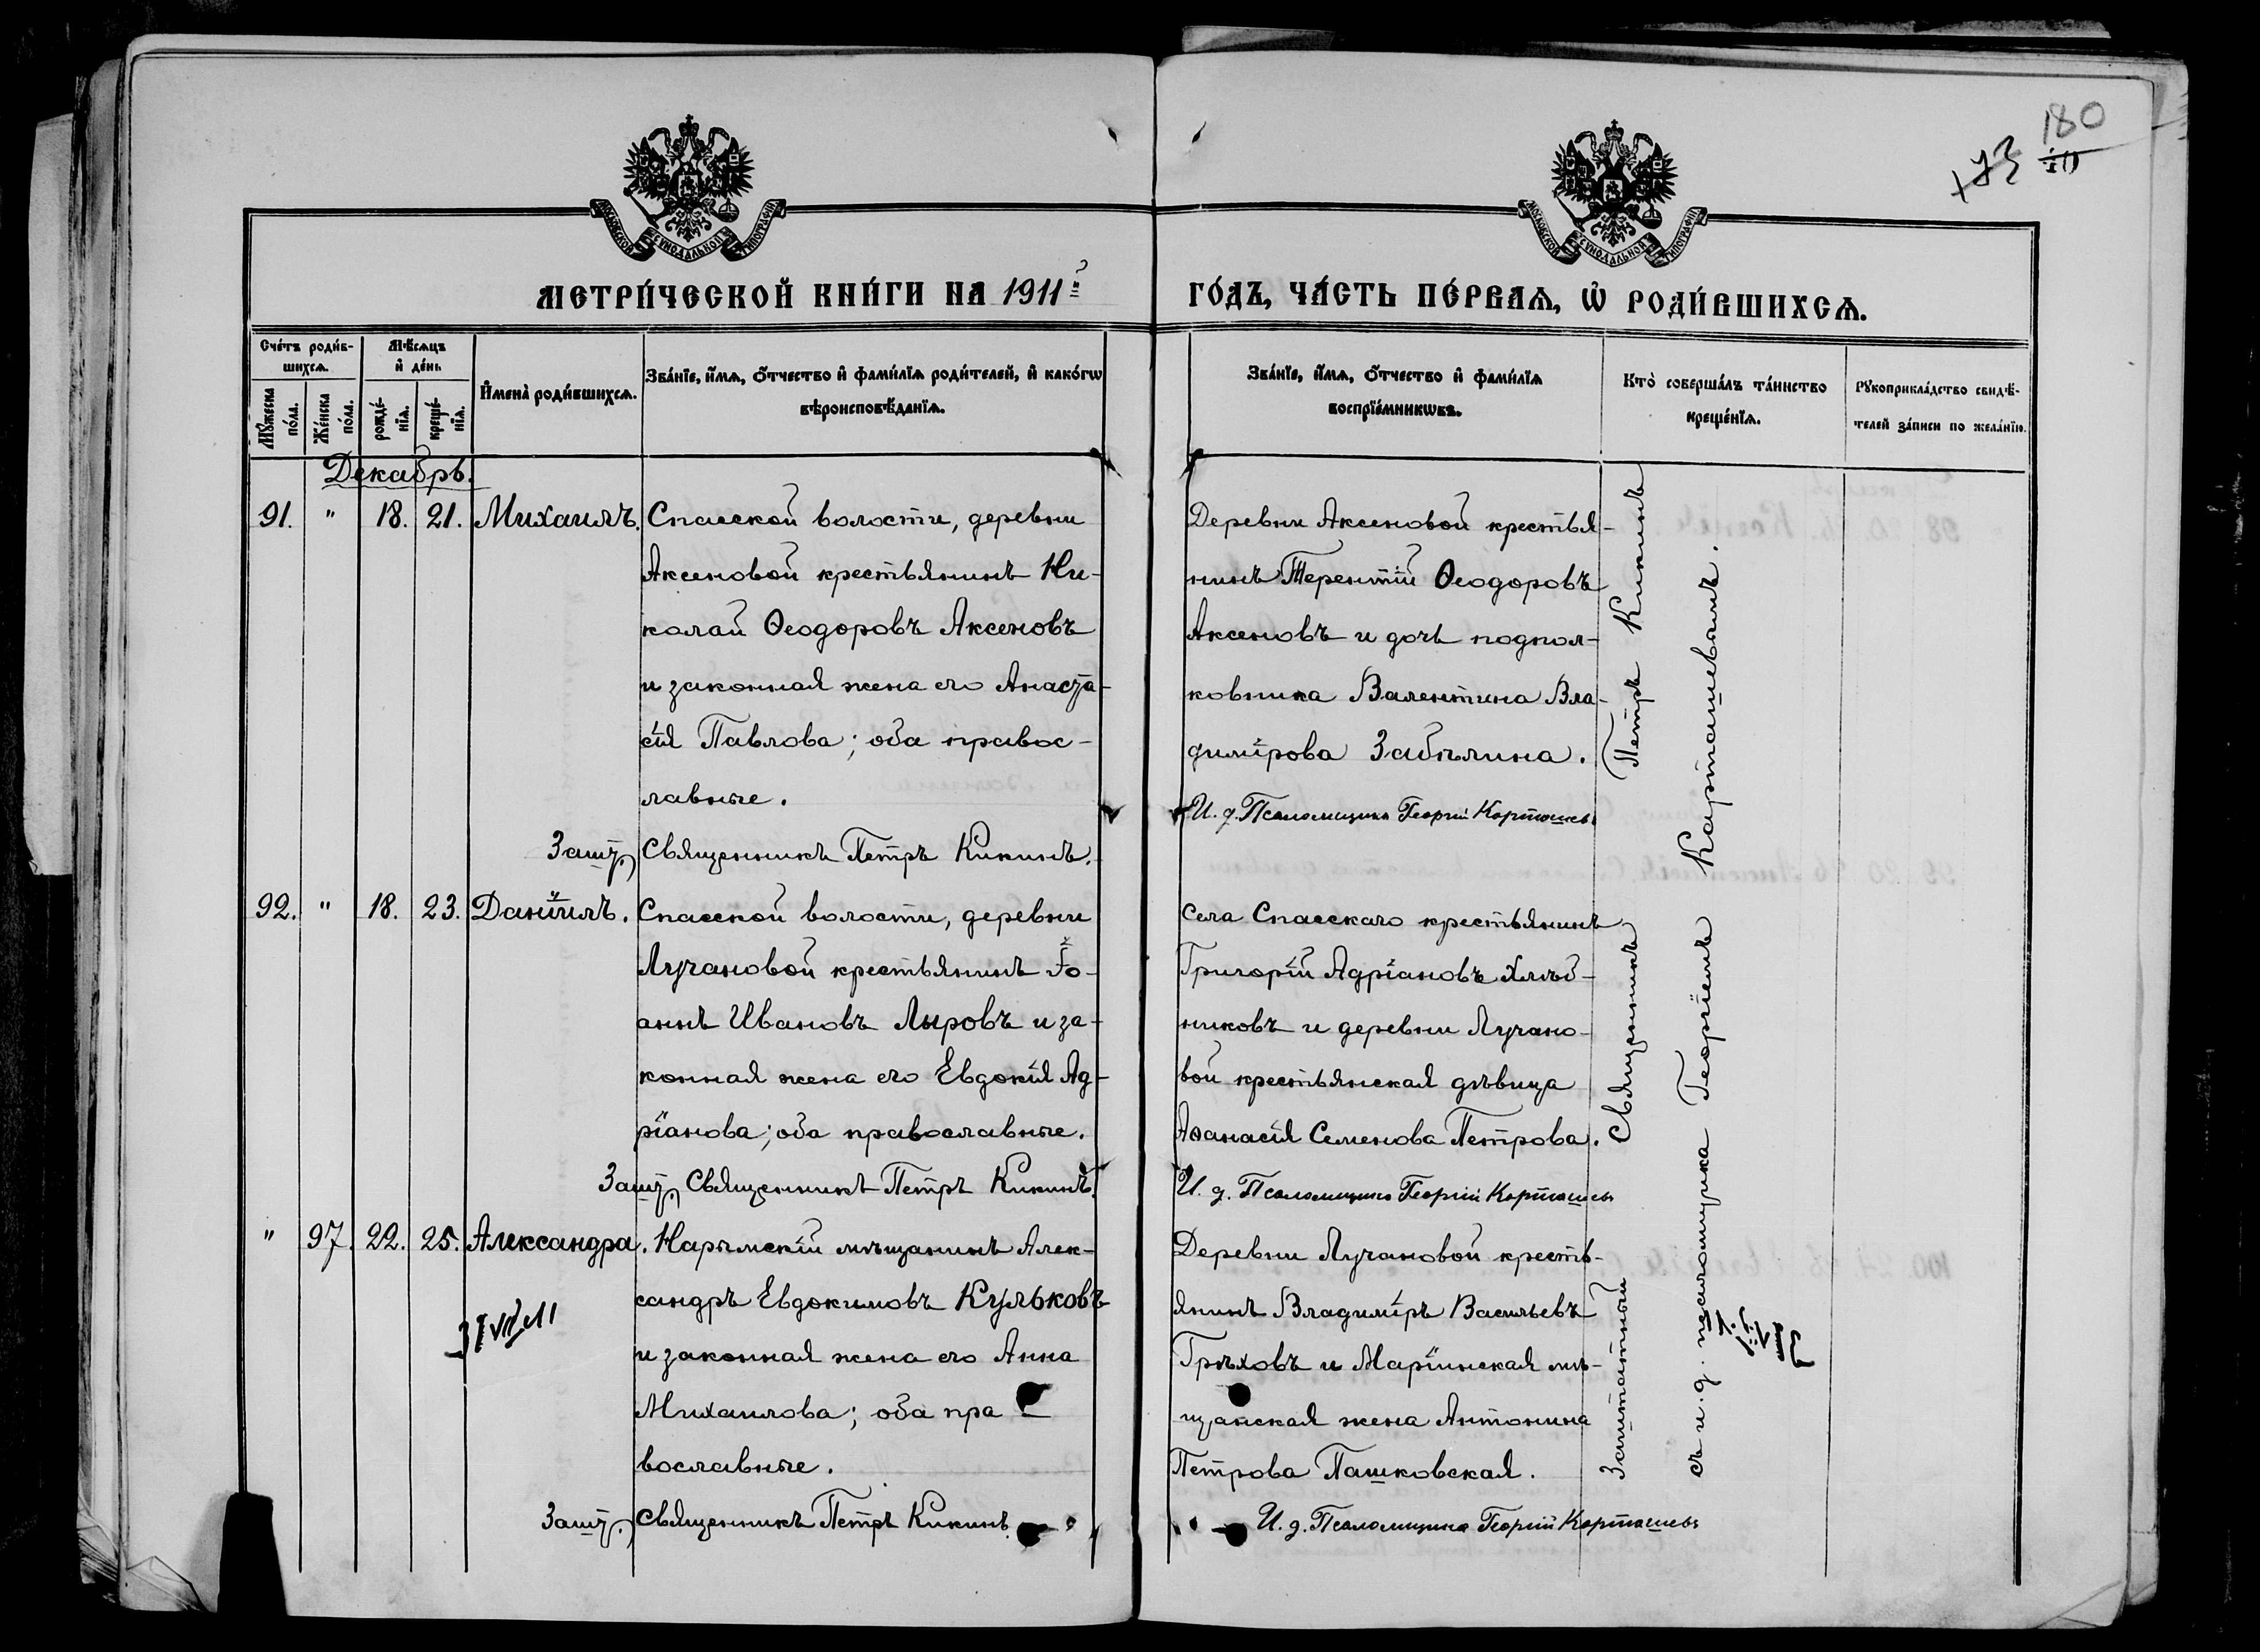 180
173
МОСКОВСКОЙ СѴНОДАЛЬНОЙ ТИПОГРАФІИ
МОСКОВСКОЙ СѴНОДАЛЬНОЙ ТИПОГРАФІИ
МЕТРИ́ЧЕСКОЙ КНИ́ГИ НА 1911й
ГО́ДЪ, ЧА́СТЬ ПЕ́РВАѦ, Ѡ҆ РОДИ́ВШИХСѦ.
Сче́тъ роди́в-
шихсѧ.
Мѣ́сѧцъ
и҆ де́нь
Мꙋ́жеска по́ла.
Же́нска по́ла.
рожде́-
нїѧ.
креще́-
нїѧ.
И҆мена̀ роди́вшихсѧ.
Зва́нїе, и҆́мѧ, ѻ҆́тчество и҆ фами́лїѧ роди́телей, и҆ како́гѡ
вѣроисповѣ́данїѧ.
Зва́нїе, и҆́мѧ, ѻ҆́тчество и҆ фами́лїѧ
воспрїе́мникѡвъ.
Кто̀ соверша́лъ та́инство
креще́нїѧ.
Рꙋкоприкла́дство свидѣ́-
телей за́писи по жела́нїю.
Декабрь.
91. " 18. 21. Михаилъ.
Спасской волости, деревни
Аксеновой крестьянинъ Ни-
колай Ѳеодоровъ Аксеновъ
и законная жена его Анаста-
сія Павлова; оба правос-
лавные.
Зашт. Священникъ Петръ Кикинъ.
Деревни Аксеновой крестья-
нинъ Терентій Ѳеодоровъ
Аксеновъ и дочь подпол-
ковника Валентина Вла-
димірова Забѣлина.
И. д. Псаломщика Георгій Карташевъ
92. " 18. 23. Даніилъ.
Спасской волости, деревни
Лучановой крестьянинъ Іо-
аннъ Ивановъ Лыровъ и за-
конная жена его Евдокія Ад-
ріанова; оба православные.
Зашт. Священникъ Петръ Кикинъ.
Села Спасскаго крестьянинъ
Григорій Адріановъ Хлѣб-
никовъ и деревни Лучано-
вой крестьянская дѣвица
Аѳанасія Семенова Петрова.
И. д. Псаломщика Георгій Карташевъ
" 97. 22. 25. Александра.
Нарымскій мѣщанинъ Алек-
сандръ Евдокимовъ Кульковъ
и законная жена его Анна
Михаилова; оба пра-
вославные.
Зашт. Священникъ Петръ Кикинъ
Деревни Лучановой кресть-
янинъ Владиміръ Васильевъ
Грѣховъ и Маріинская мѣ-
щанская жена Антонина
Петрова Пашковская.
И. д. Псаломщика Георгій Карташевъ
Заштатный Священникъ Петръ Кикинъ
съ и. д. псаломщика Георгіемъ Карташевымъ.